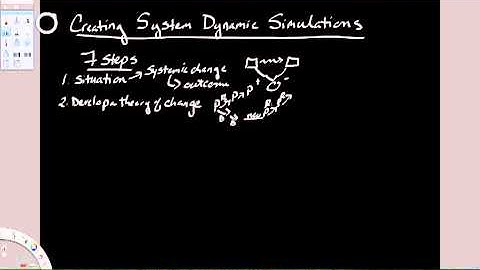 Creating System Dynamic Simulations
7 Steps
1. Situation → Systemic change
↳ outcome
2. Develop a theory of change